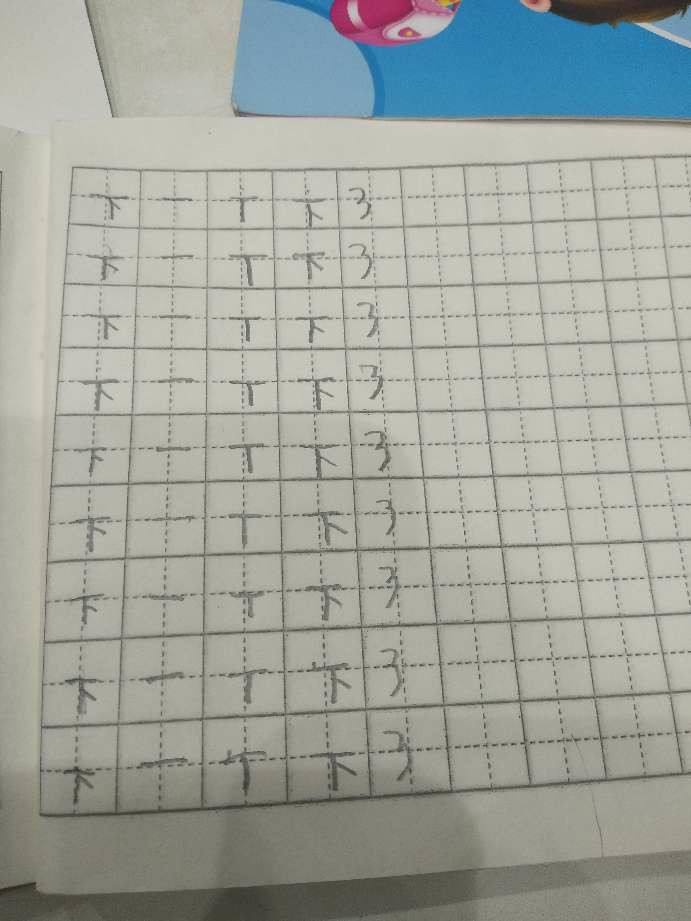 下 一 丅 下 3
下 一 丅 下 3
下 一 丅 下 3
下 一 丅 下 3
下 一 丅 下 3
下 一 丅 下 3
下 一 丅 下 3
下 一 丅 下 3
下 一 丅 下 3